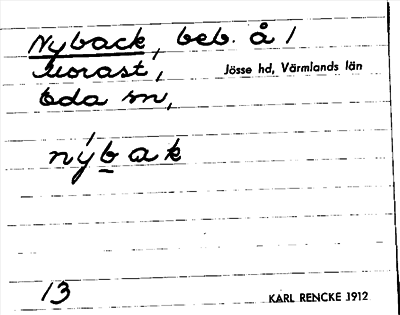 Nyback, beb. å /
Morast,
Jösse hd, Värmlands län
Eda sn,
nýbak
13
KARL RENCKE 1912